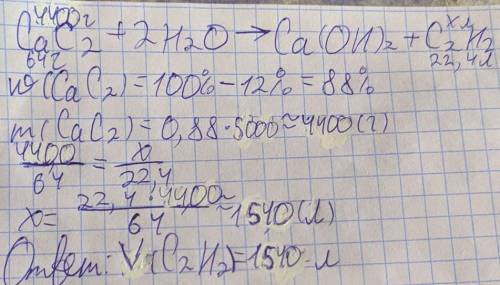 4400 г х л
CaC2 + 2H2O → Ca(OH)2 + C2H2
64 г 22,4 л
w(CaC2) = 100% - 12% = 88%
m(CaC2) = 0,88 · 5000 ≈ 4400 (г)
4400/64 = x/22,4
x = 22,4 · 4400/64 ≈ 1540 (л)
Ответ: V(C2H2) = 1540 л